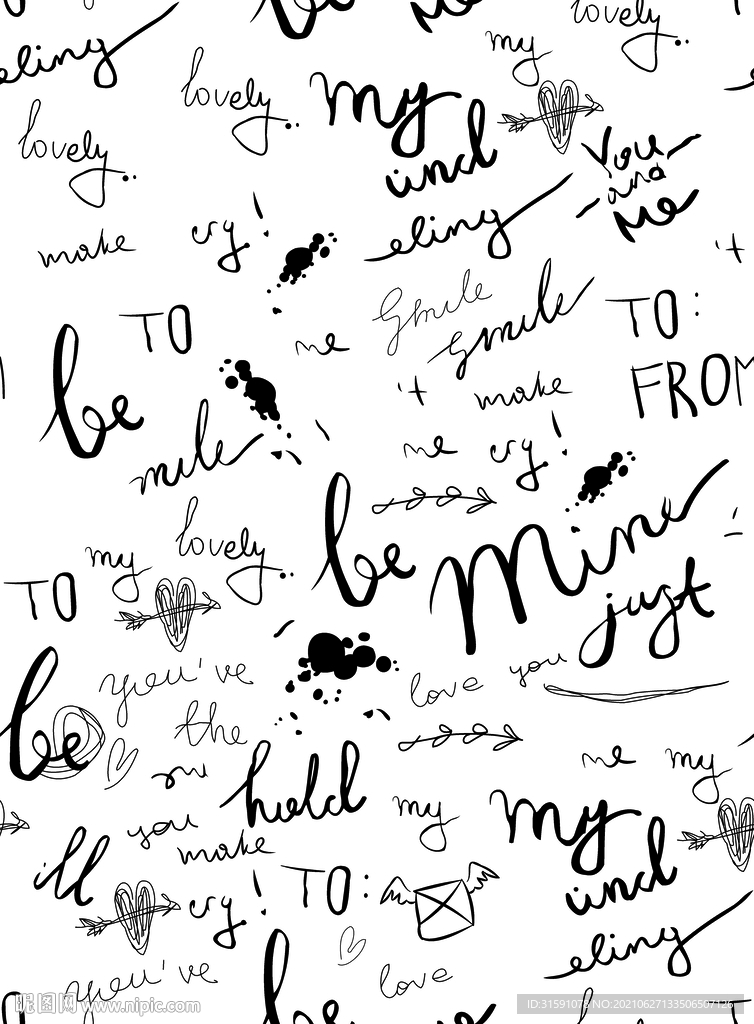 be
me
eling
lovely
my
lovely
my
lovely
und
You
and
Me
make cry!
eling
't
TO
me
Smile
Smile
TO:
be
't
make
FROM
mile
me cry!
my
lovely
be
mine
TO
just
be
you've
love you
the
me my
hold
my
my
you
make
ill
und
cry!
TO:
eling
you've
be
love
昵图网 www.nipic.com
ID:31591073 NO:20210627133506507126